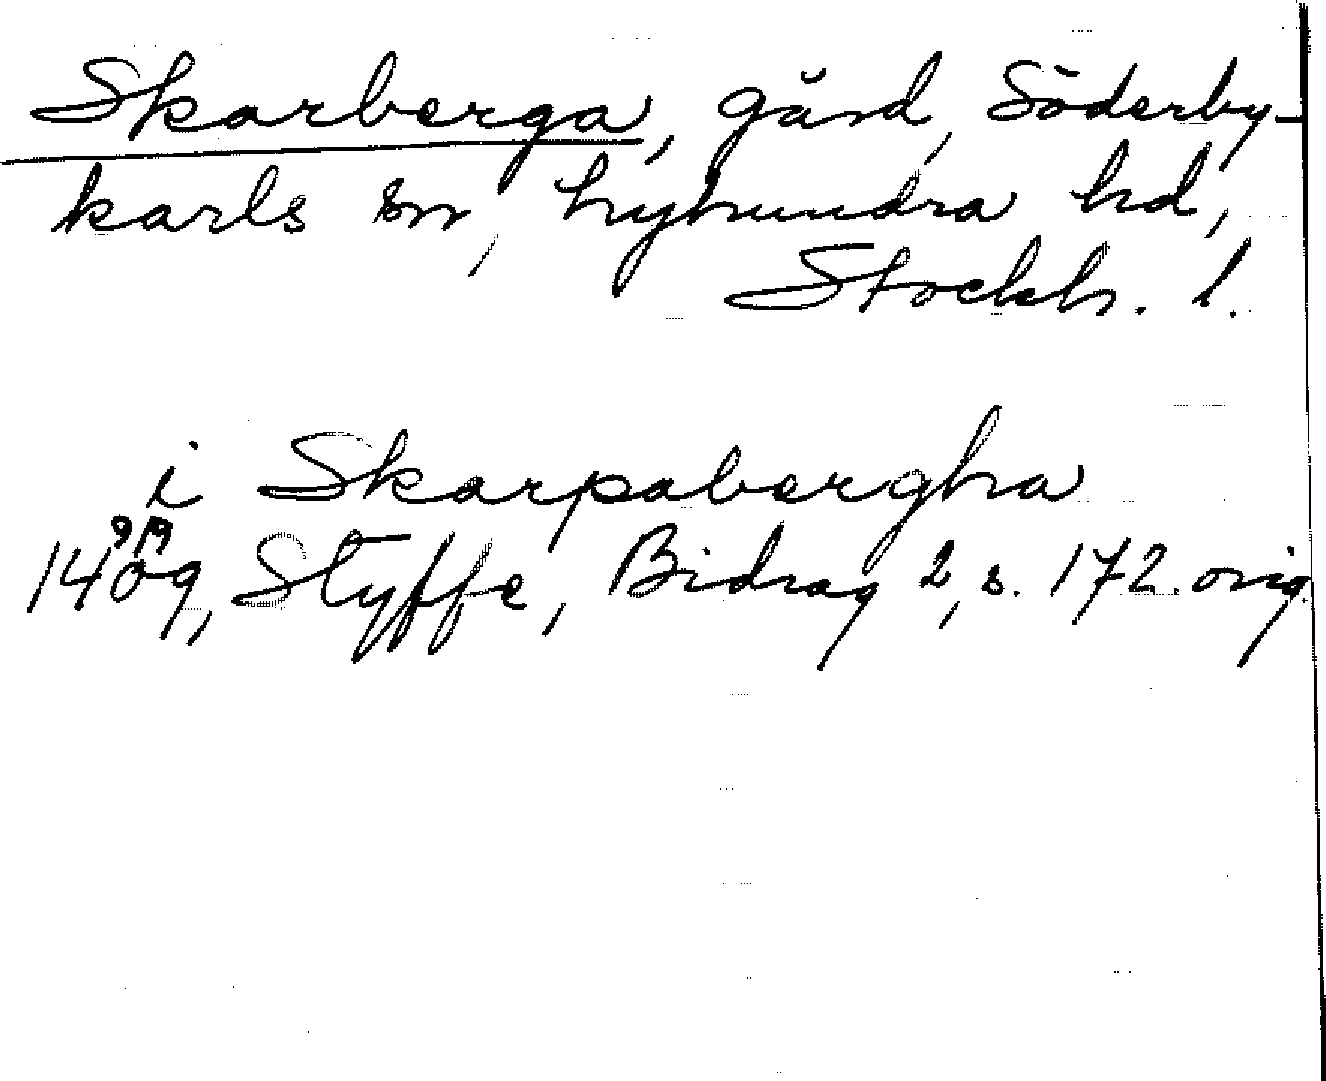 Skarberga, gård, Söderby-
karls sn, Lyhundra hd,
Stockh. l.
i Skarpabergha
1409 9/9, Styffe, Bidrag 2, s. 172. orig.